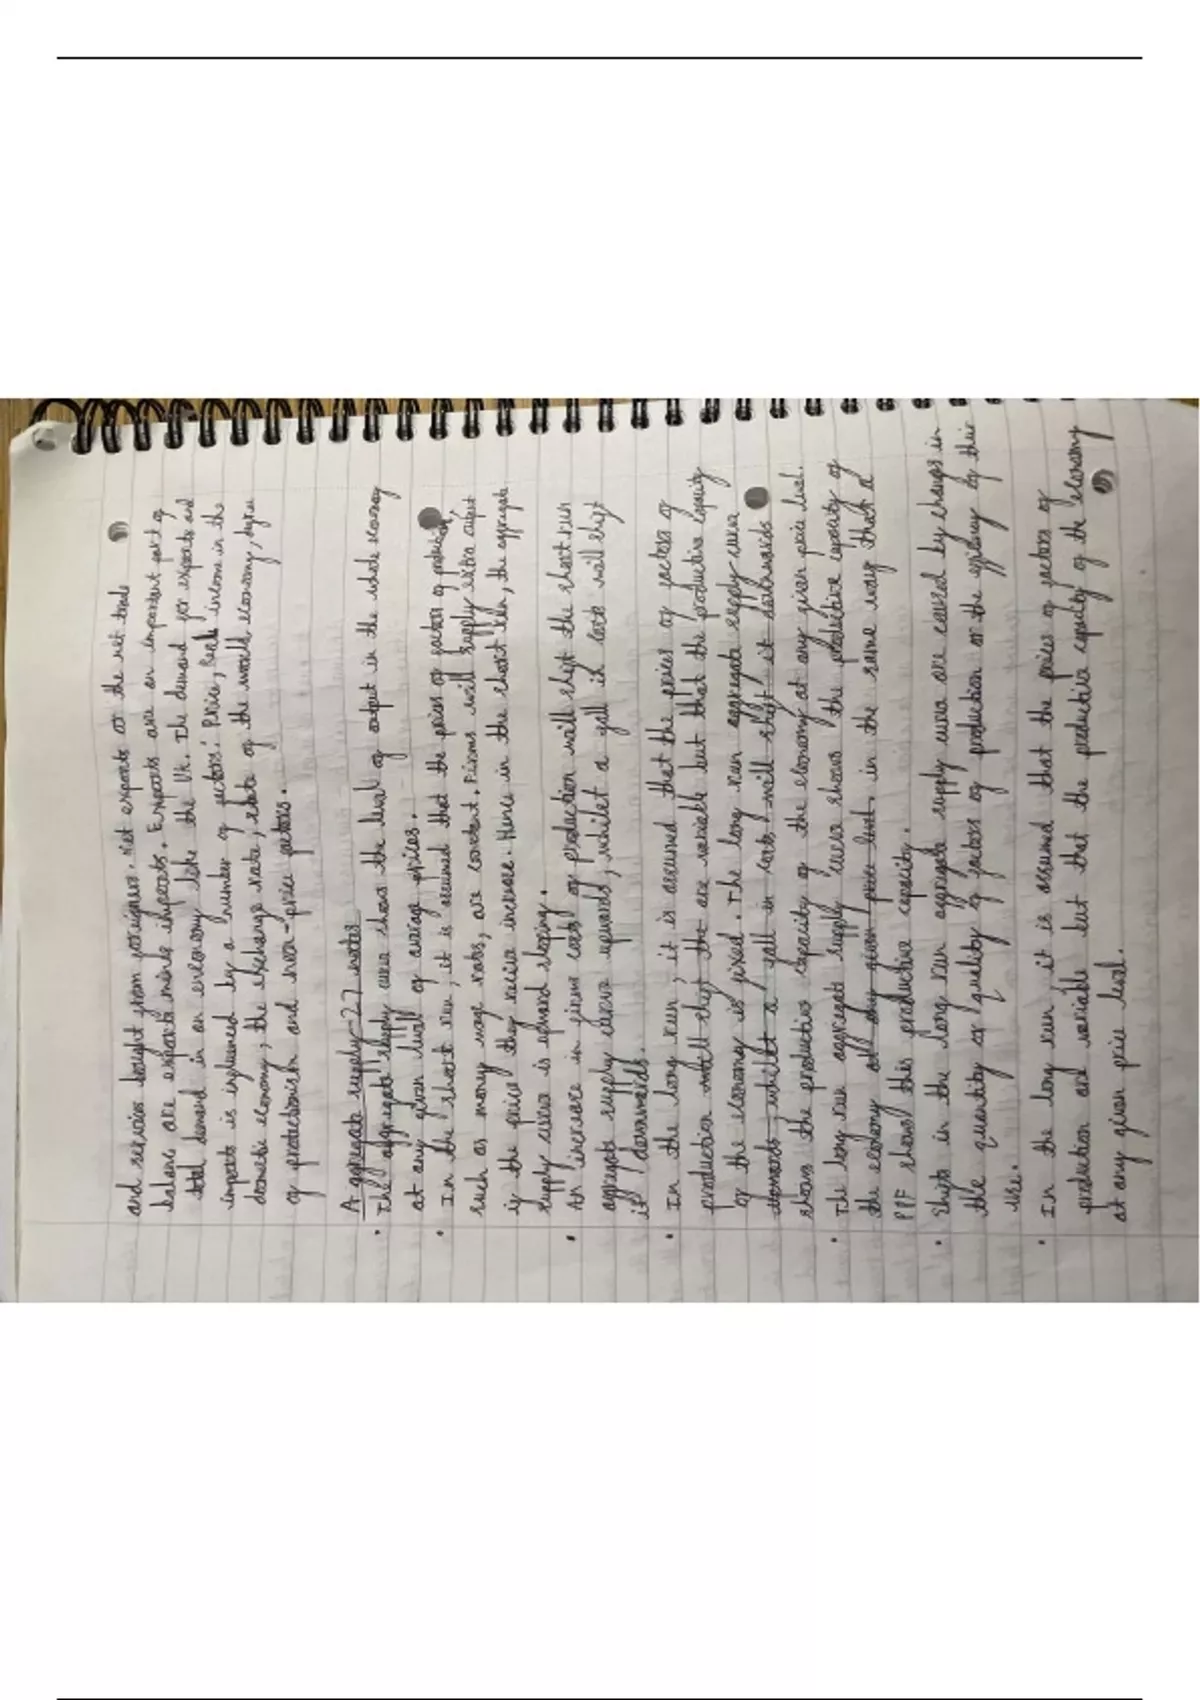 and services bought from foreigners. Net exports or the net trade
balance are exports minus imports. Exports are an important part of
total demand in an economy like the UK. The demand for exports and
imports is influenced by a number of factors: Price, Real income in the
domestic economy, the exchange rate, state of the world economy, degree
of protectionism and non-price factors.
Aggregate supply 27 notes
• The aggregate supply curve shows the level of output in the whole economy
at any given level of average prices.
• In the short run, it is assumed that the prices of factors of production,
such as money wage rates, are constant. Firms will supply extra output
if the price they receive increase. Hence in the short run, the aggregate
supply curve is upward sloping.
• An increase in firms costs of production will shift the short run
aggregate supply curve upwards, whilst a fall in costs will shift
it downwards.
• In the long run, it is assumed that the prices of factors of
production will shift the are variable but that the productive capacity
of the economy is fixed. The long run aggregate supply curve
whilst a fall in costs will shift it downwards
shows the productive capacity of the economy at any given price level.
• The long run aggregate supply curve shows the productive capacity of
the economy at any given price level. in the same way that a
PPF shows this productive capacity.
• Shifts in the long run aggregate supply curve are caused by changes in
the quantity or quality of factors of production or the efficiency of their
use.
• In the long run it is assumed that the prices of factors of
production are variable but that the productive capacity of the economy
at any given price level.